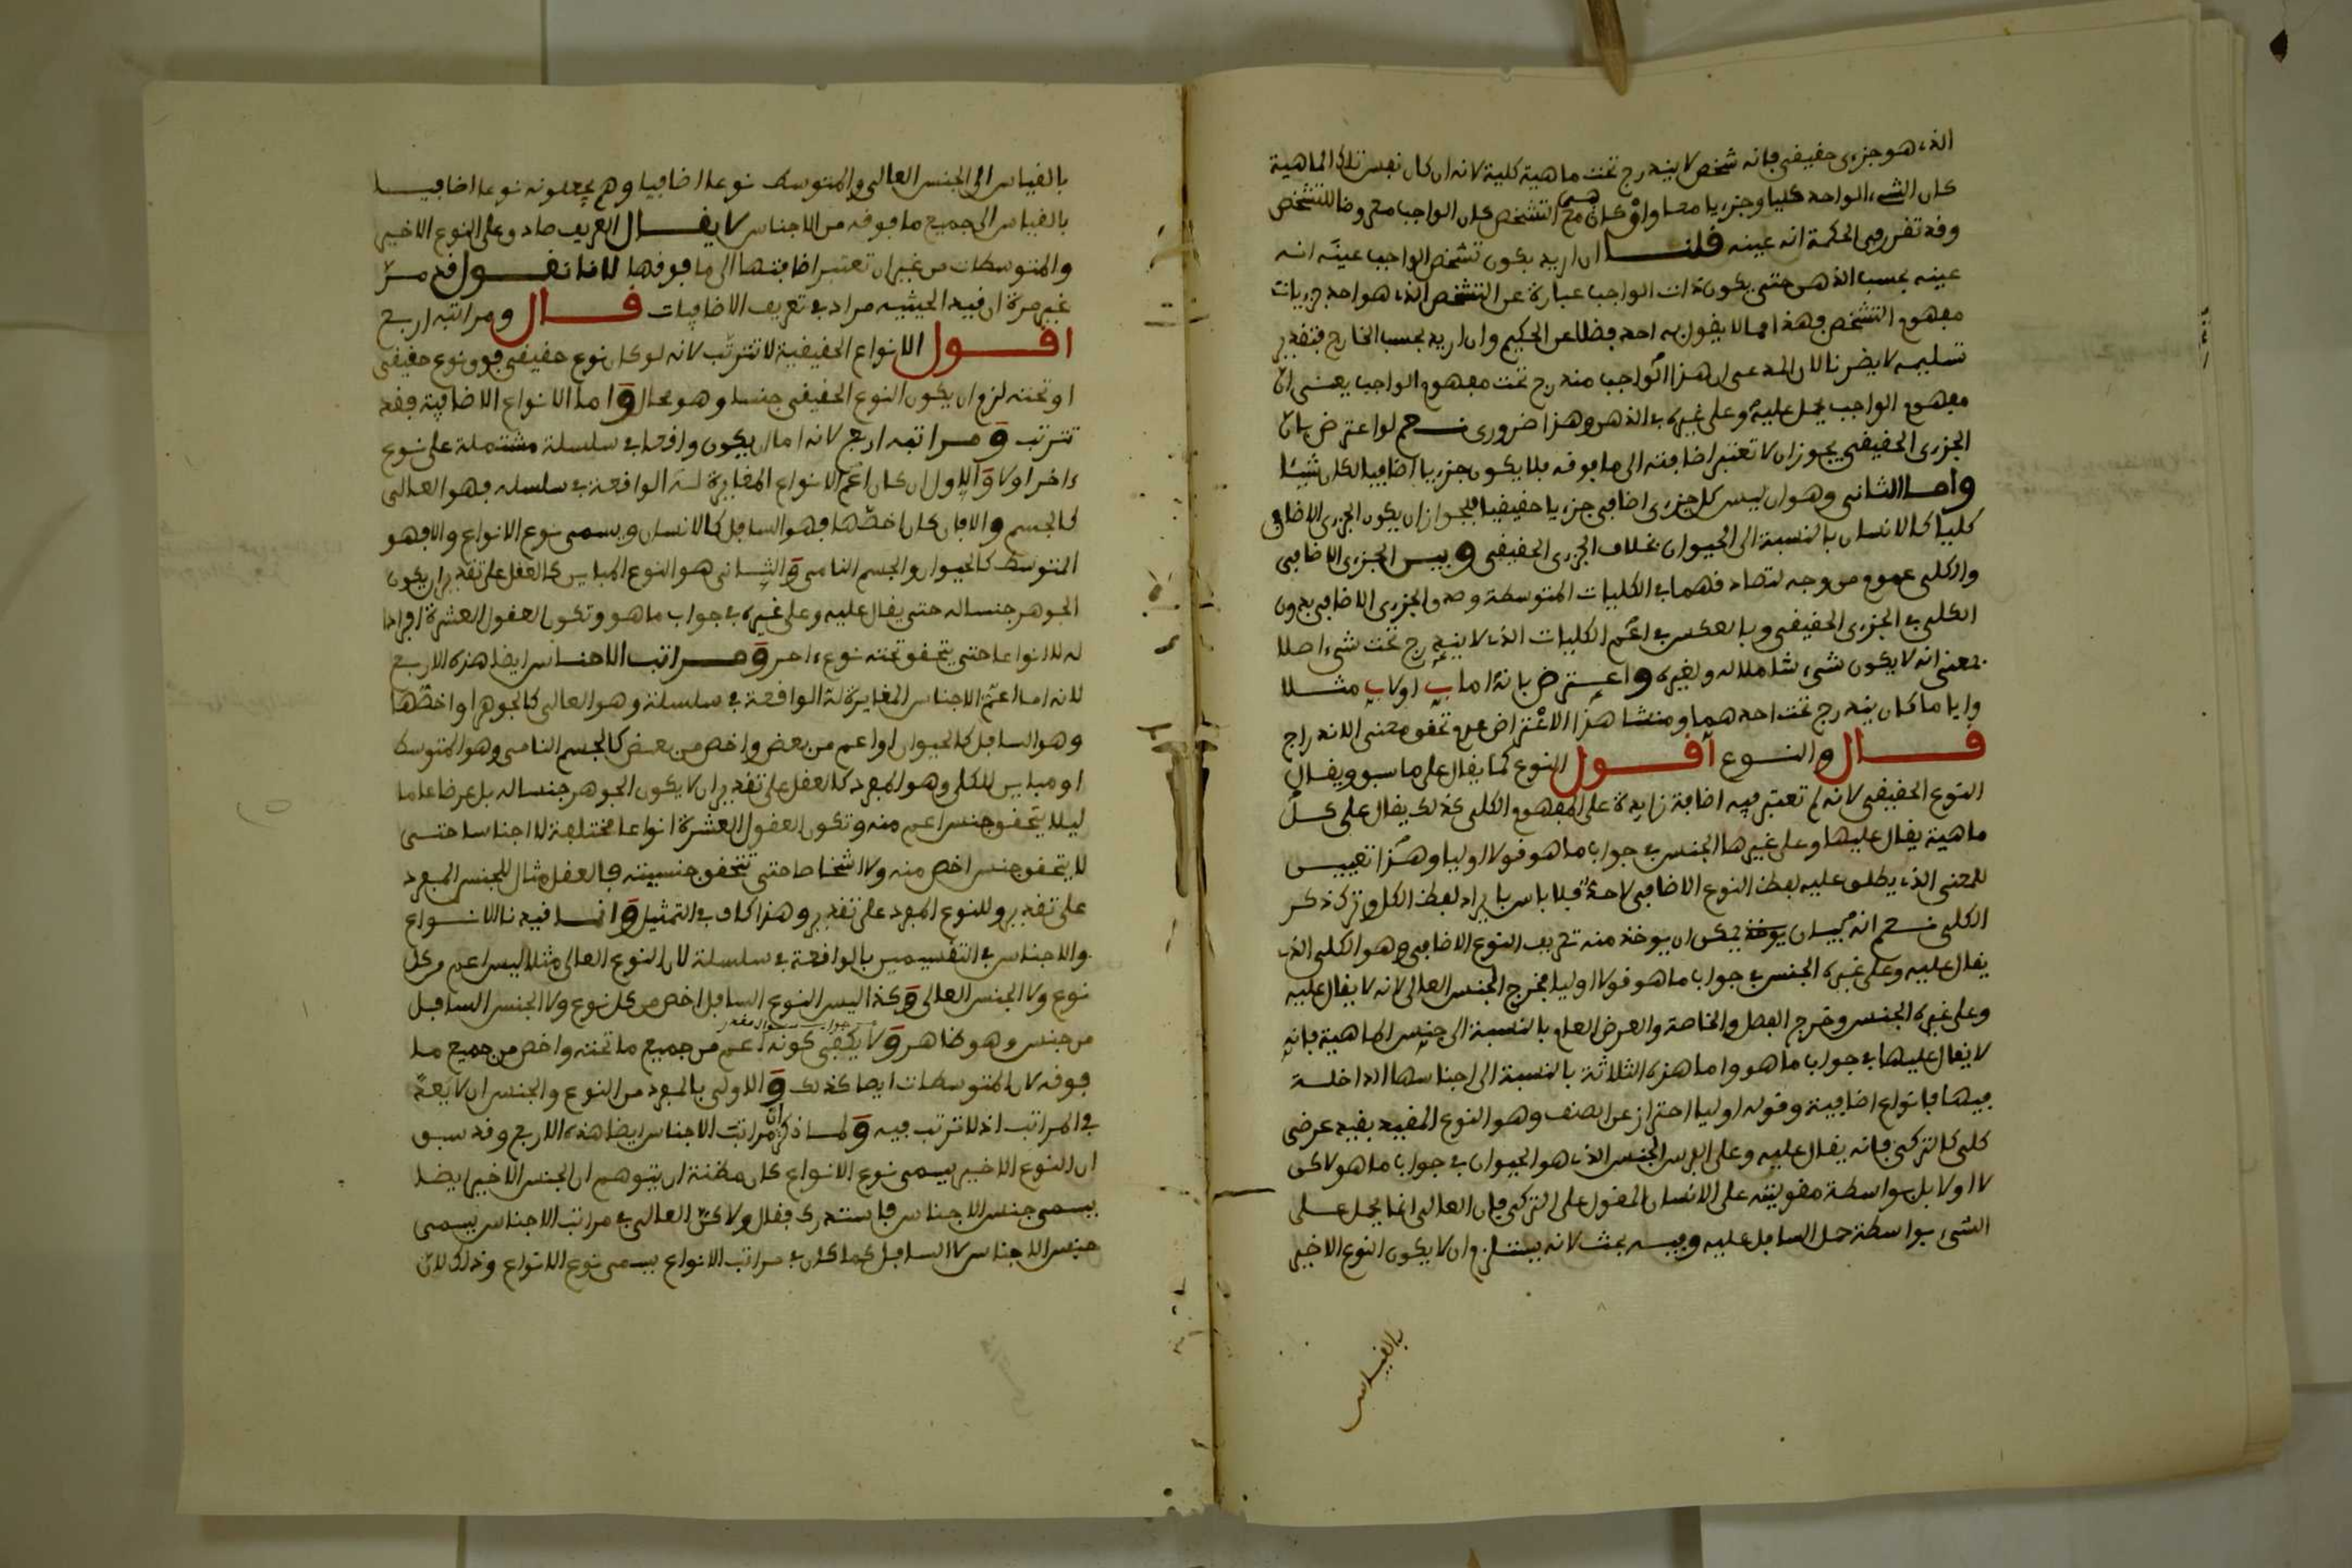 الذى هو جزءى حقيقى فإنه شخص لا يندرج تحت ماهية كلية لانه ان كان نفس تلك الماهية
كان الشىء الواحد كليا وجزءيا معا وان كان هى مع التشخص كان الواجب معروضا للتشخص
وقد تقرر فى الحكمة انه عينه قلنا ان اريد بكون تشخص الواجب عينه انه
عينه بحسب الذهن حتى يكون ذات الواجب عبارة عن التشخص الذى هو احد جزءيات
مفهوم التشخص فهذا مما لا يقول به احد فضلا عن الحكيم وان اريد بحسب الخارج فبتقدير
تسليمه لا يضرنا لان المدعى ان هذا الواجب مندرج تحت مفهوم الواجب يعنى ان
مفهوم الواجب يحمل عليه وعلى غيره فى الذهن وهذا ضرورى نعم لو اعترض بان
الجزءى الحقيقى يجوز ان لا تعتبر اضافته الى ما فوقه فلا يكون جزءيا اضافيا لكان شيئا
واما الثانى وهو ان ليس كل جزءى اضافى جزءيا حقيقيا فلجواز ان يكون الجزءى الاضافى
كليا كالانسان بالنسبة الى الحيوان بخلاف الجزءى الحقيقى وبين الجزءى الاضافى
والكلى عموم من وجه لتصادقهما فى الكليات المتوسطة وصدق الجزءى الاضافى بدون
الكلى فى الجزءى الحقيقى وبالعكس فى اعم الكليات الذى لا يندرج تحت شىء اصلا
بمعنى انه لا يكون شىء شاملا له ولغيره واعترض بانه اما ب او لا ب مثلا
وايا ما كان يندرج تحت احدهما ومنشا هذا الاعتراض عدم تحقق معنى الاندراج
قال والنوع اقول النوع كما يقال على ما سبق ويقال
النوع الحقيقى لانه لم تعتبر فيه اضافة زايدة على المفهوم الكلى كذلك يقال على كل
ماهية يقال عليها وعلى غيرها الجنس فى جواب ما هو قولا اوليا وهذا تعيين
للمعنى الذى يطلق عليه لفظ النوع الاضافى لا حد فلا باس بايراد لفظ الكل وترك ذكر
الكلى نعم انه يمكن ان يوخذ منه تعريف النوع الاضافى وهو الكلى الذى
يقال عليه وعلى غيره الجنس فى جواب ما هو قولا اوليا فخرج الجنس العالى لانه لا يقال عليه
وعلى غيره الجنس وخرج الفصل والخاصة والعرض العام بالنسبة الى جنس الماهية فانه
لا يقال عليها فى جواب ما هو واما هذه الثلاثة بالنسبة الى اجناسها الداخلة
فيها فانواع اضافية وقوله اوليا احتراز عن الصنف وهو النوع المقيد بقيد عرضى
كلى كالتركى فانه يقال عليه وعلى الفرس الجنس الذى هو الحيوان فى جواب ما هو لاكن
لا اولا بل بواسطة مقوليته على الانسان المقول على التركى فان العالى انما يحمل على
الشىء بواسطة حمل السافل عليه وفيه بحث لانه يستلزم ان لا يكون النوع الاخير
بالقياس
بالقياس الى الجنس العالى والمتوسط نوعا اضافيا وهم يجعلونه نوعا اضافيا
بالقياس الى جميع ما فوقه من الاجناس لا يقال التعريف صادق على النوع الاخير
والمتوسطات من غير ان تعتبر اضافتها الى ما فوقها لانا نقول قد مر
غير مرة ان قيد الحيثية مراد فى تعريف الاضافيات قال ومراتبه اربع
اقول الانواع الحقيقية لا تترتب لانه لو كان نوع حقيقى فوق نوع حقيقى
او تحته لزم ان يكون النوع الحقيقى جنسا وهو محال واما الانواع الاضافية فقد
تترتب ومراتبه اربع لانه اما ان يكون واقعا فى سلسلة مشتملة على نوع
ءاخر او لا والاول ان كان اعم الانواع المغايرة له الواقعة فى سلسلة فهو العالى
كالجسم والا فان كان اخصها فهو السافل كالانسان ويسمى نوع الانواع والا فهو
المتوسط كالحيوان والجسم النامى والثانى هو النوع المباين كالعقل على تقدير ان يكون
الجوهر جنسا له حتى يقال عليه وعلى غيره فى جواب ما هو وتكون العقول العشرة افرادا
له لا انواعا حتى يتحقق تحته نوع ءاخر ومراتب الاجناس ايضا هذه الاربع
لانه اما اعم الاجناس المغايرة له الواقعة فى سلسلة وهو العالى كالجوهر او اخصها
وهو السافل كالحيوان او اعم من بعض واخص من بعض كالجسم النامى وهو المتوسط
او مباين للكل وهو المفرد كالعقل على تقدير ان لا يكون الجوهر جنسا له بل عرضا عاما
ليلا يتحقق جنس اعم منه وتكون العقول العشرة انواعا مختلفة لا اجناسا حتى
لا يتحقق جنس اخص منه ولا اشخاصا حتى تتحقق جنسيته فالعقل مثال للجنس المفرد
على تقدير وللنوع المفرد على تقدير وهذا كاف فى التمثيل وانما قيدنا الانواع
والاجناس فى التقسيمين بالواقعة فى سلسلة لان النوع العالى مثلا ليس اعم من كل
نوع ولا الجنس العالى وكذا ليس النوع السافل اخص من كل نوع ولا الجنس السافل
جواب سوال مقدر
من جنس وهو ظاهر ولا يكفى كونه اعم من جميع ما تحته واخص من جميع ما
فوقه لان المتوسطات ايضا كذلك والاولى بالمفرد من النوع والجنس ان لا يعد
فى المراتب اذ لا ترتب فيه ولما ذكر ان مراتب الاجناس ايضا هذه الاربع وقد سبق
ان النوع الاخير يسمى نوع الانواع كان مظنة ان يتوهم ان الجنس الاخير ايضا
يسمى جنس الاجناس فاستدرك فقال ولاكن العالى فى مراتب الاجناس يسمى
جنس الاجناس لا السافل كما كان فى مراتب الانواع يسمى نوع الانواع وذلك لان